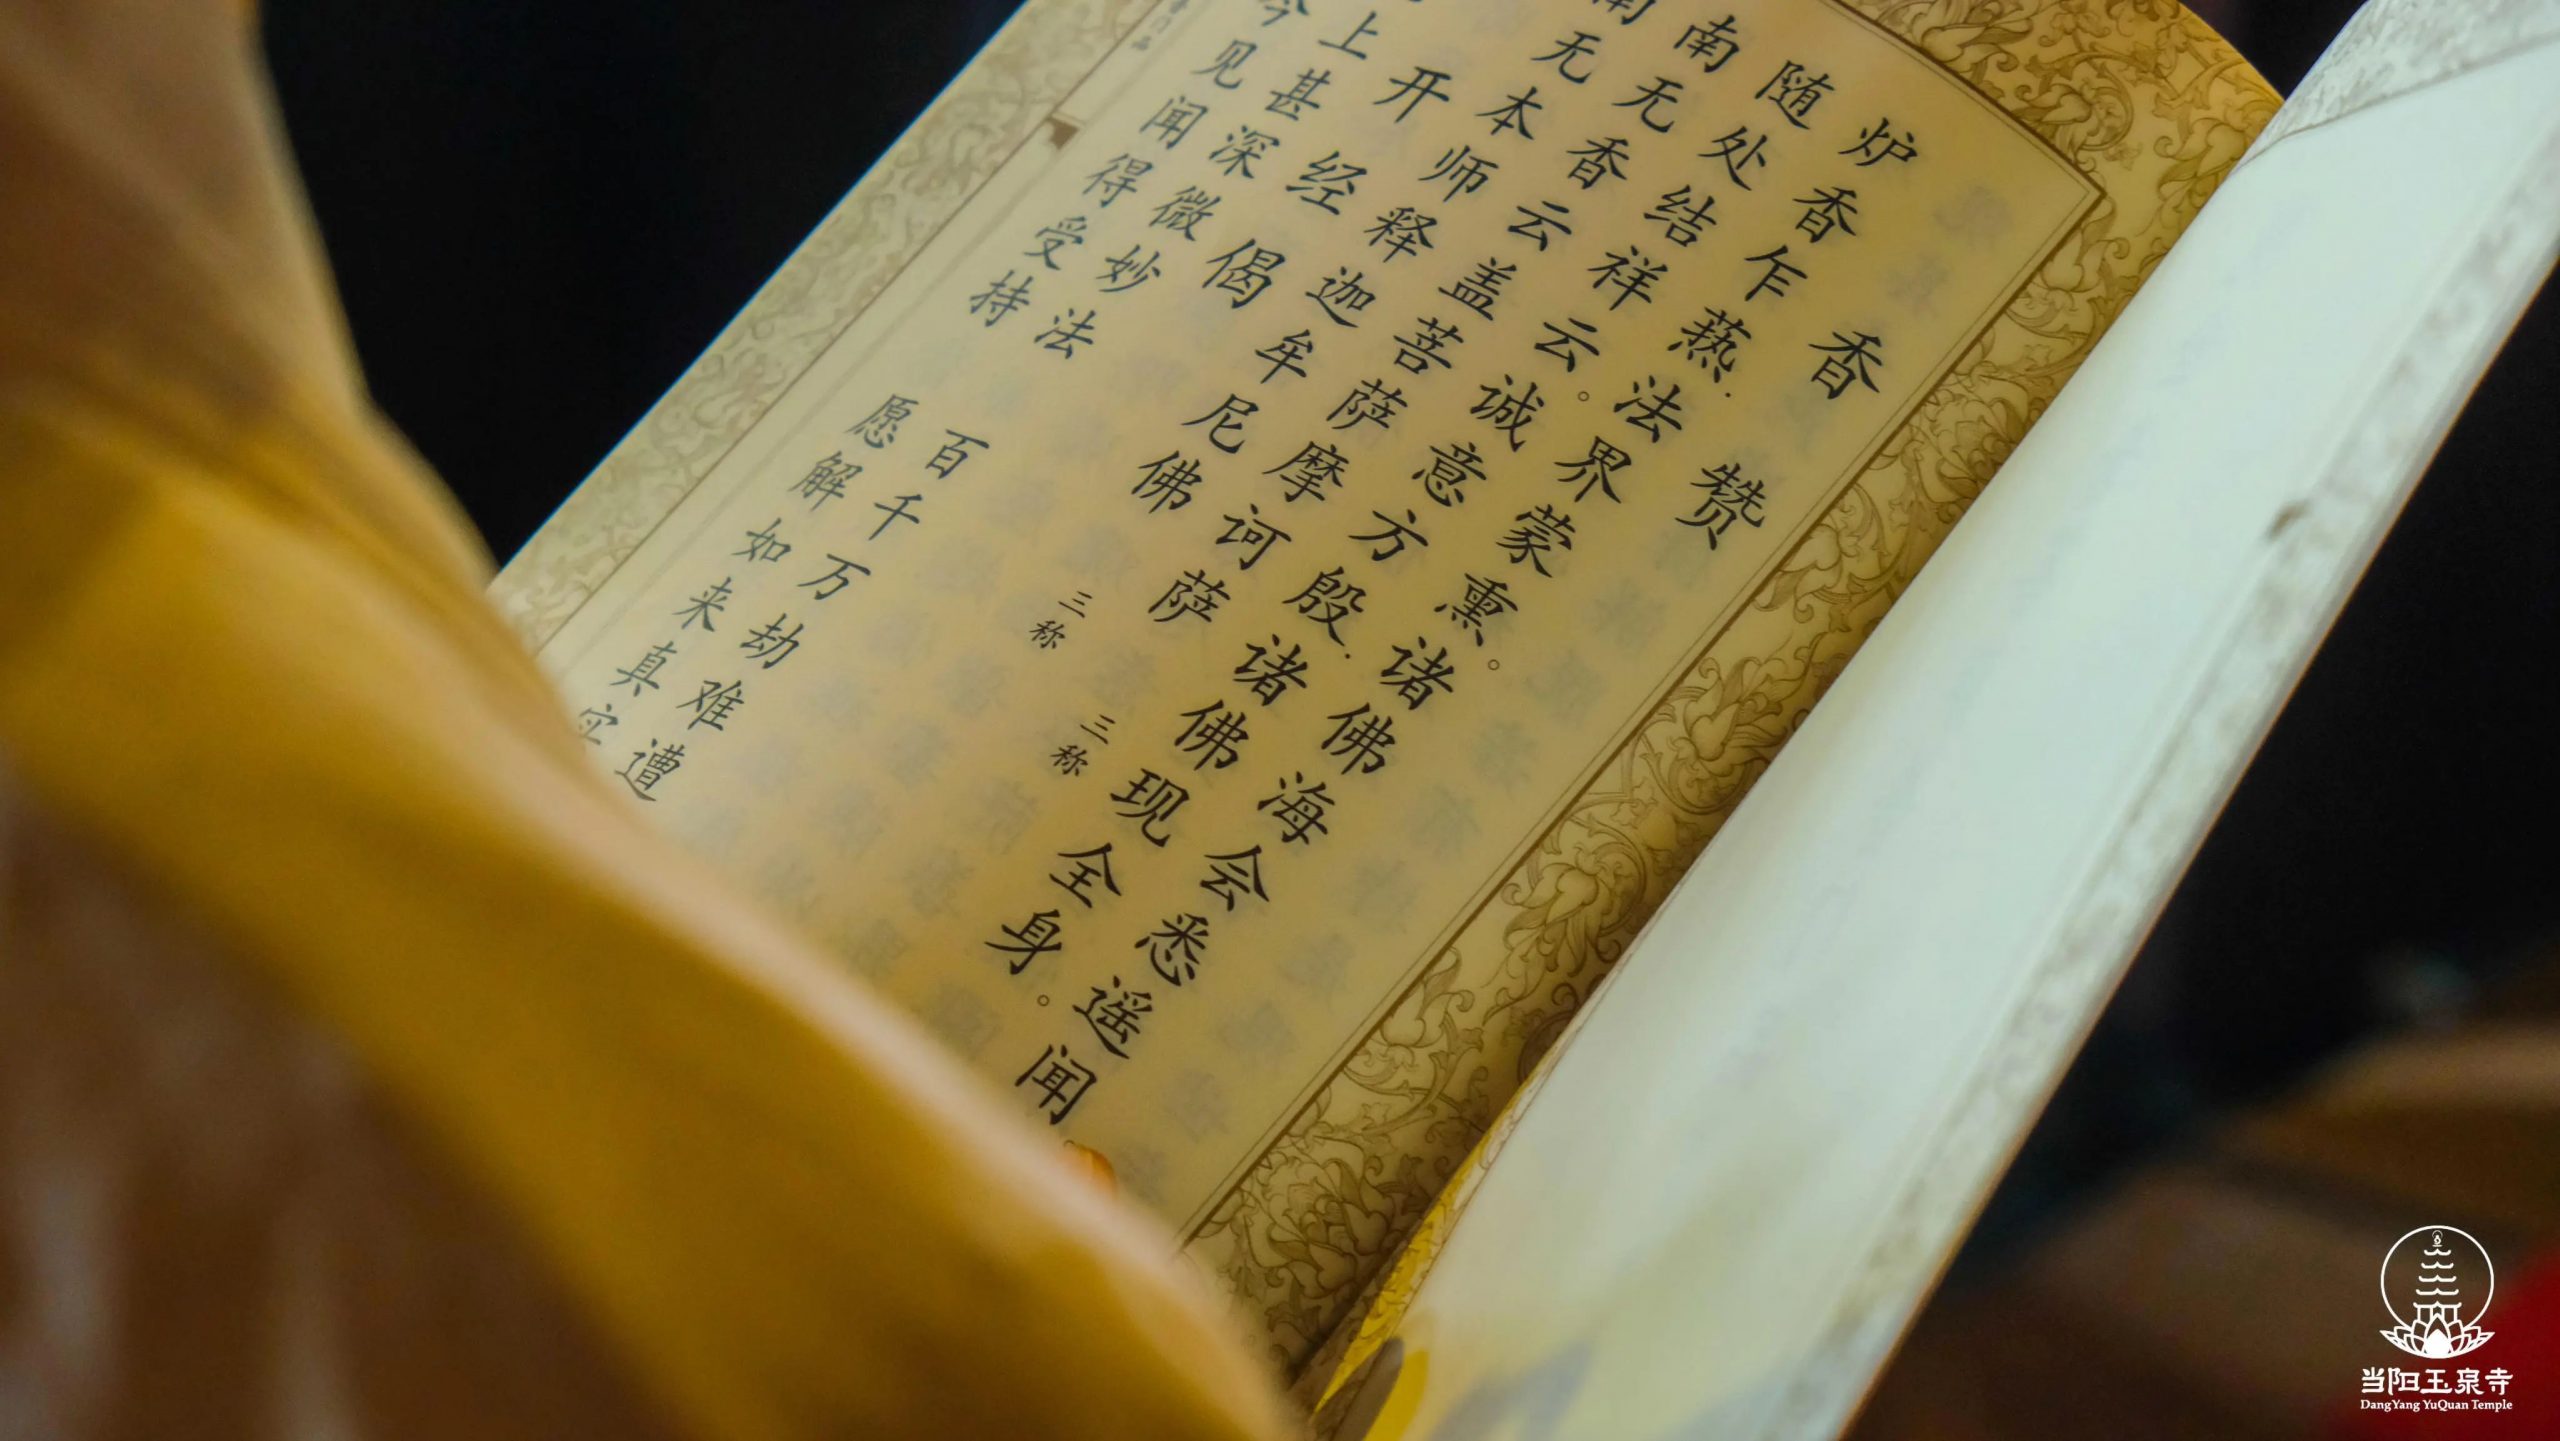 香赞
炉香乍爇．法界蒙熏。诸佛海会悉遥闻
随处结祥云。诚意方殷．诸佛现全身。
南无香云盖菩萨摩诃萨 三称
南无本师释迦牟尼佛 三称
开经偈
上甚深微妙法 百千万劫难遭
今见闻得受持 愿解如来真实
当阳玉泉寺
DangYang YuQuan Temple